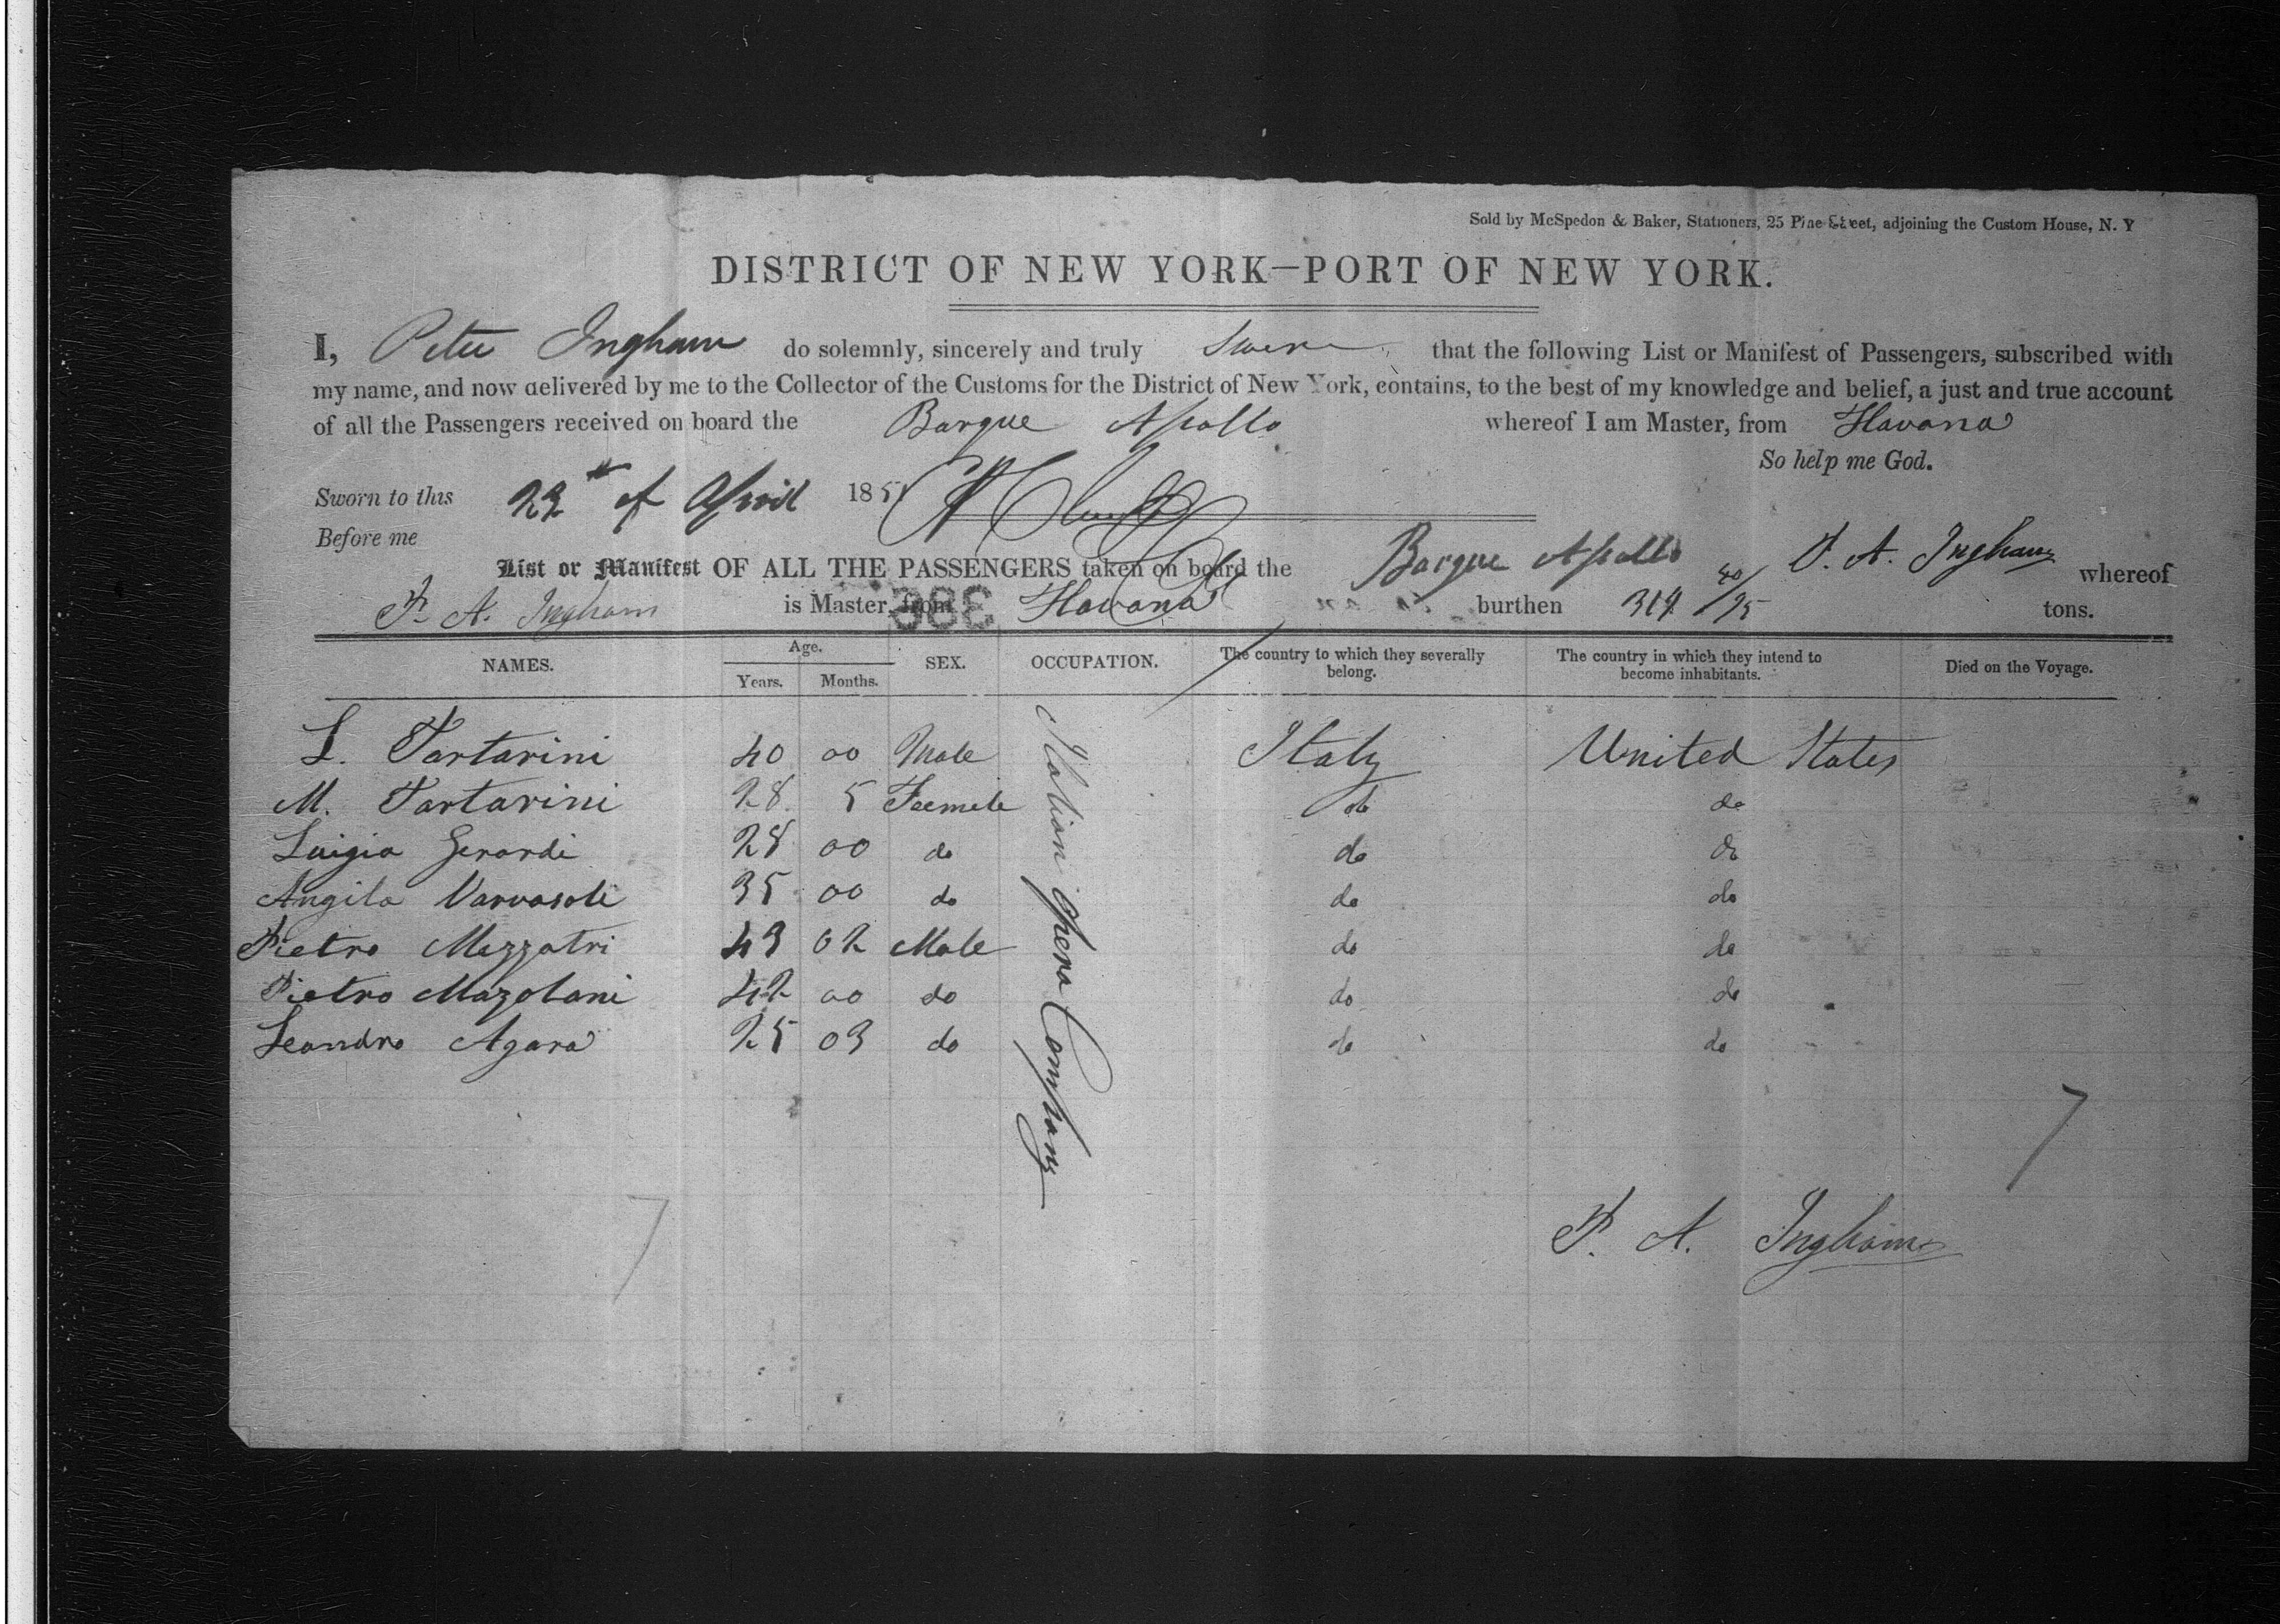 Sold by McSpedon & Baker, Stationers, 25 Pine Street, adjoining the Custom House, N. Y
DISTRICT OF NEW YORK—PORT OF NEW YORK.
I, Peter Ingham do solemnly, sincerely and truly swear that the following List or Manifest of Passengers, subscribed with
my name, and now delivered by me to the Collector of the Customs for the District of New York, contains, to the best of my knowledge and belief, a just and true account
of all the Passengers received on board the Barque Apollo whereof I am Master, from Havana
So help me God.
Sworn to this of April 1851
Before me
List or Manifest OF ALL THE PASSENGERS taken on board the Barque Apollo P. A. Ingham whereof
P. A. Ingham is Master, from Havana burthen 314 /95 tons.
NAMES. Age. Years. Months. SEX. OCCUPATION. The country to which they severally belong. The country in which they intend to become inhabitants. Died on the Voyage.
L. Tartarini 40 00 Male Italy United States
M. Tartarini 28 5 Feemele do do
Luigia Gerardi 28 00 do do do
Angila Varvasole 35 00 do do do
Pietro Mezzatri 43 02 Male do do
Pietro Mazolani 42 00 do do do
Leandro Agara 25 03 do do do
Italian Opera Company
7
7
P. A. Ingham